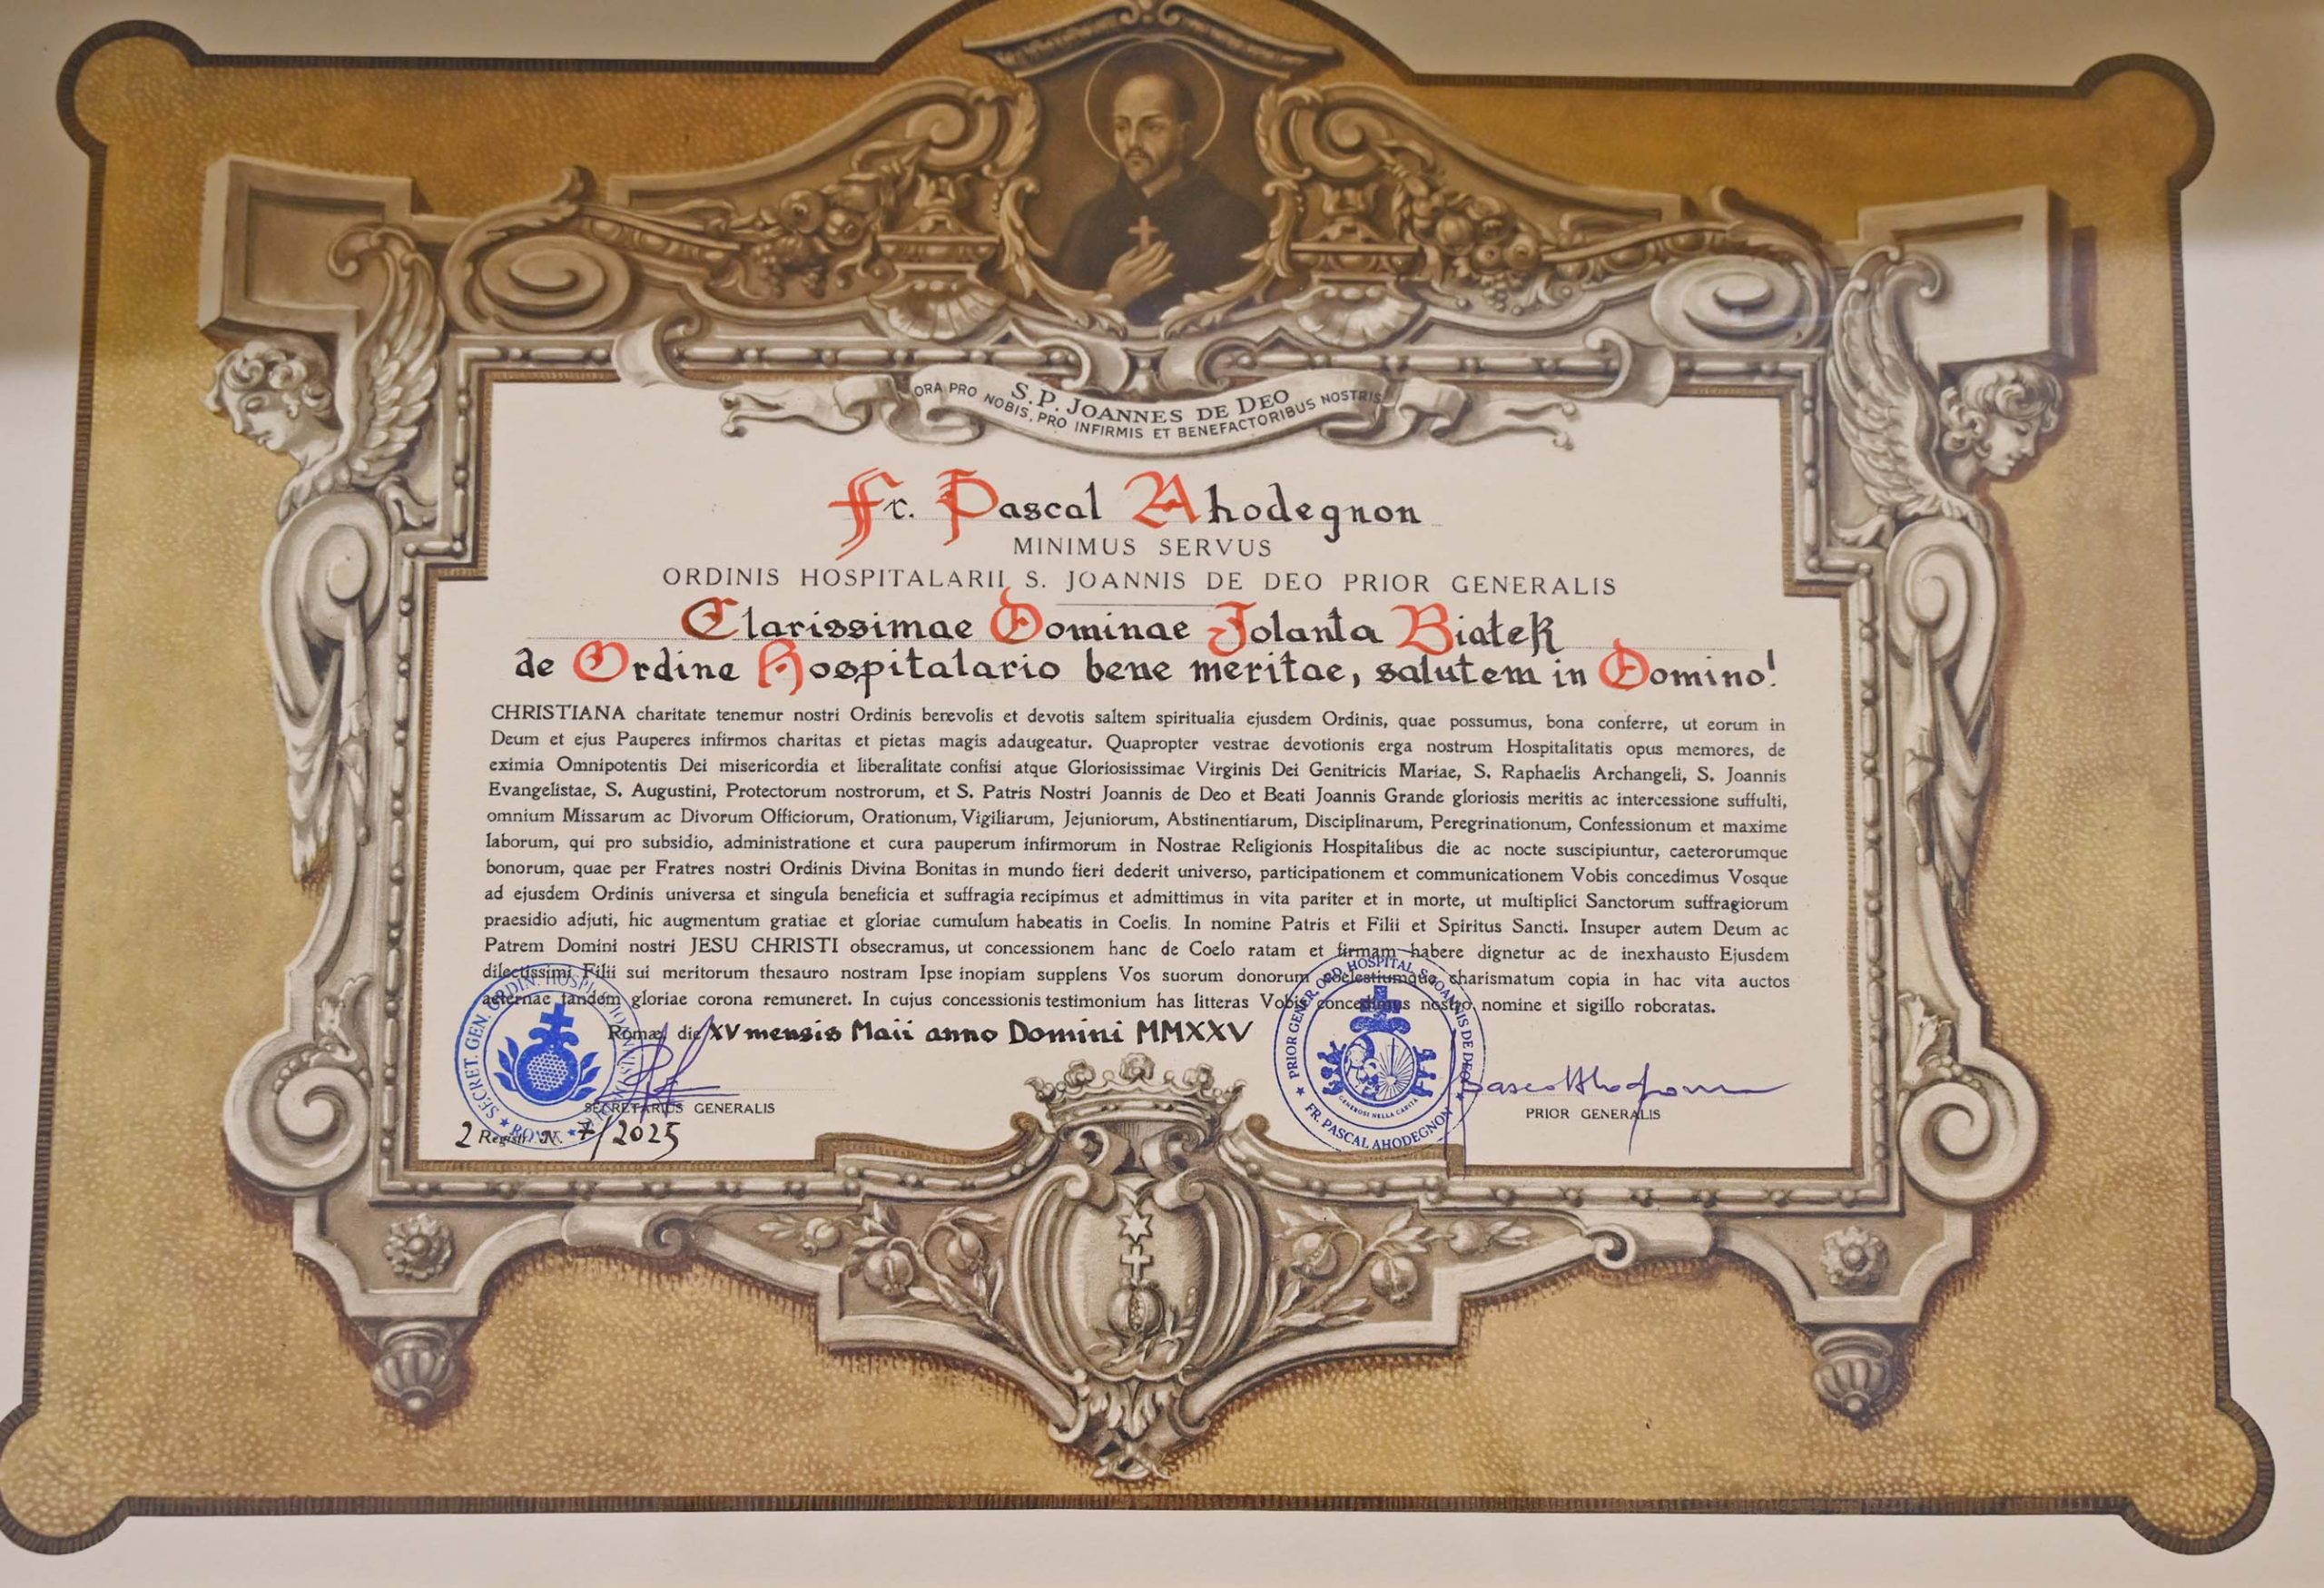 S. P. JOANNES DE DEO
ORA PRO NOBIS, PRO INFIRMIS ET BENEFACTORIBUS NOSTRIS
Fr. Pascal Ahodegnon
MINIMUS SERVUS
ORDINIS HOSPITALARII S. JOANNIS DE DEO PRIOR GENERALIS
Clarissimae Dominae Jolanta Białek
de Ordine Hospitalario bene meritae, salutem in Domino!
CHRISTIANA charitate tenemur nostri Ordinis benevolis et devotis saltem spiritualia ejusdem Ordinis, quae possumus, bona conferre, ut eorum in
Deum et ejus Pauperes infirmos charitas et pietas magis adaugeatur. Quapropter vestrae devotionis erga nostrum Hospitalitatis opus memores, de
eximia Omnipotentis Dei misericordia et liberalitate confisi atque Gloriosissimae Virginis Dei Genitricis Mariae, S. Raphaelis Archangeli, S. Joannis
Evangelistae, S. Augustini, Protectorum nostrorum, et S. Patris Nostri Joannis de Deo et Beati Joannis Grande gloriosis meritis ac intercessione suffulti,
omnium Missarum ac Divorum Officiorum, Orationum, Vigiliarum, Jejuniorum, Abstinentiarum, Disciplinarum, Peregrinationum, Confessionum et maxime
laborum, qui pro subsidio, administratione et cura pauperum infirmorum in Nostrae Religionis Hospitalibus die ac nocte suscipiuntur, caeterorumque
bonorum, quae per Fratres nostri Ordinis Divina Bonitas in mundo fieri dederit universo, participationem et communicationem Vobis concedimus Vosque
ad ejusdem Ordinis universa et singula beneficia et suffragia recipimus et admittimus in vita pariter et in morte, ut multiplici Sanctorum suffragiorum
praesidio adjuti, hic augmentum gratiae et gloriae cumulum habeatis in Coelis. In nomine Patris et Filii et Spiritus Sancti. Insuper autem Deum ac
Patrem Domini nostri JESU CHRISTI obsecramus, ut concessionem hanc de Coelo ratam et firmam habere dignetur ac de inexhausto Ejusdem
dilectissimi Filii sui meritorum thesauro nostram Ipse inopiam supplens Vos suorum donorum coelestiumque charismatum copia in hac vita auctos
aeternae tandem gloriae corona remuneret. In cujus concessionis testimonium has litteras Vobis concedimus nostro nomine et sigillo roboratas.
Romae, die XV mensis Maii anno Domini MMXXV
SECRET. GEN. ORDIN. HOSPIT.
ROMA
SECRETARIUS GENERALIS
2 Registr. N. 7/2025
PRIOR GENER. ORD. HOSPITAL. S. JOANNIS DE DEO
GENEROSI NELLA CARITÀ
FR. PASCAL AHODEGNON
PRIOR GENERALIS